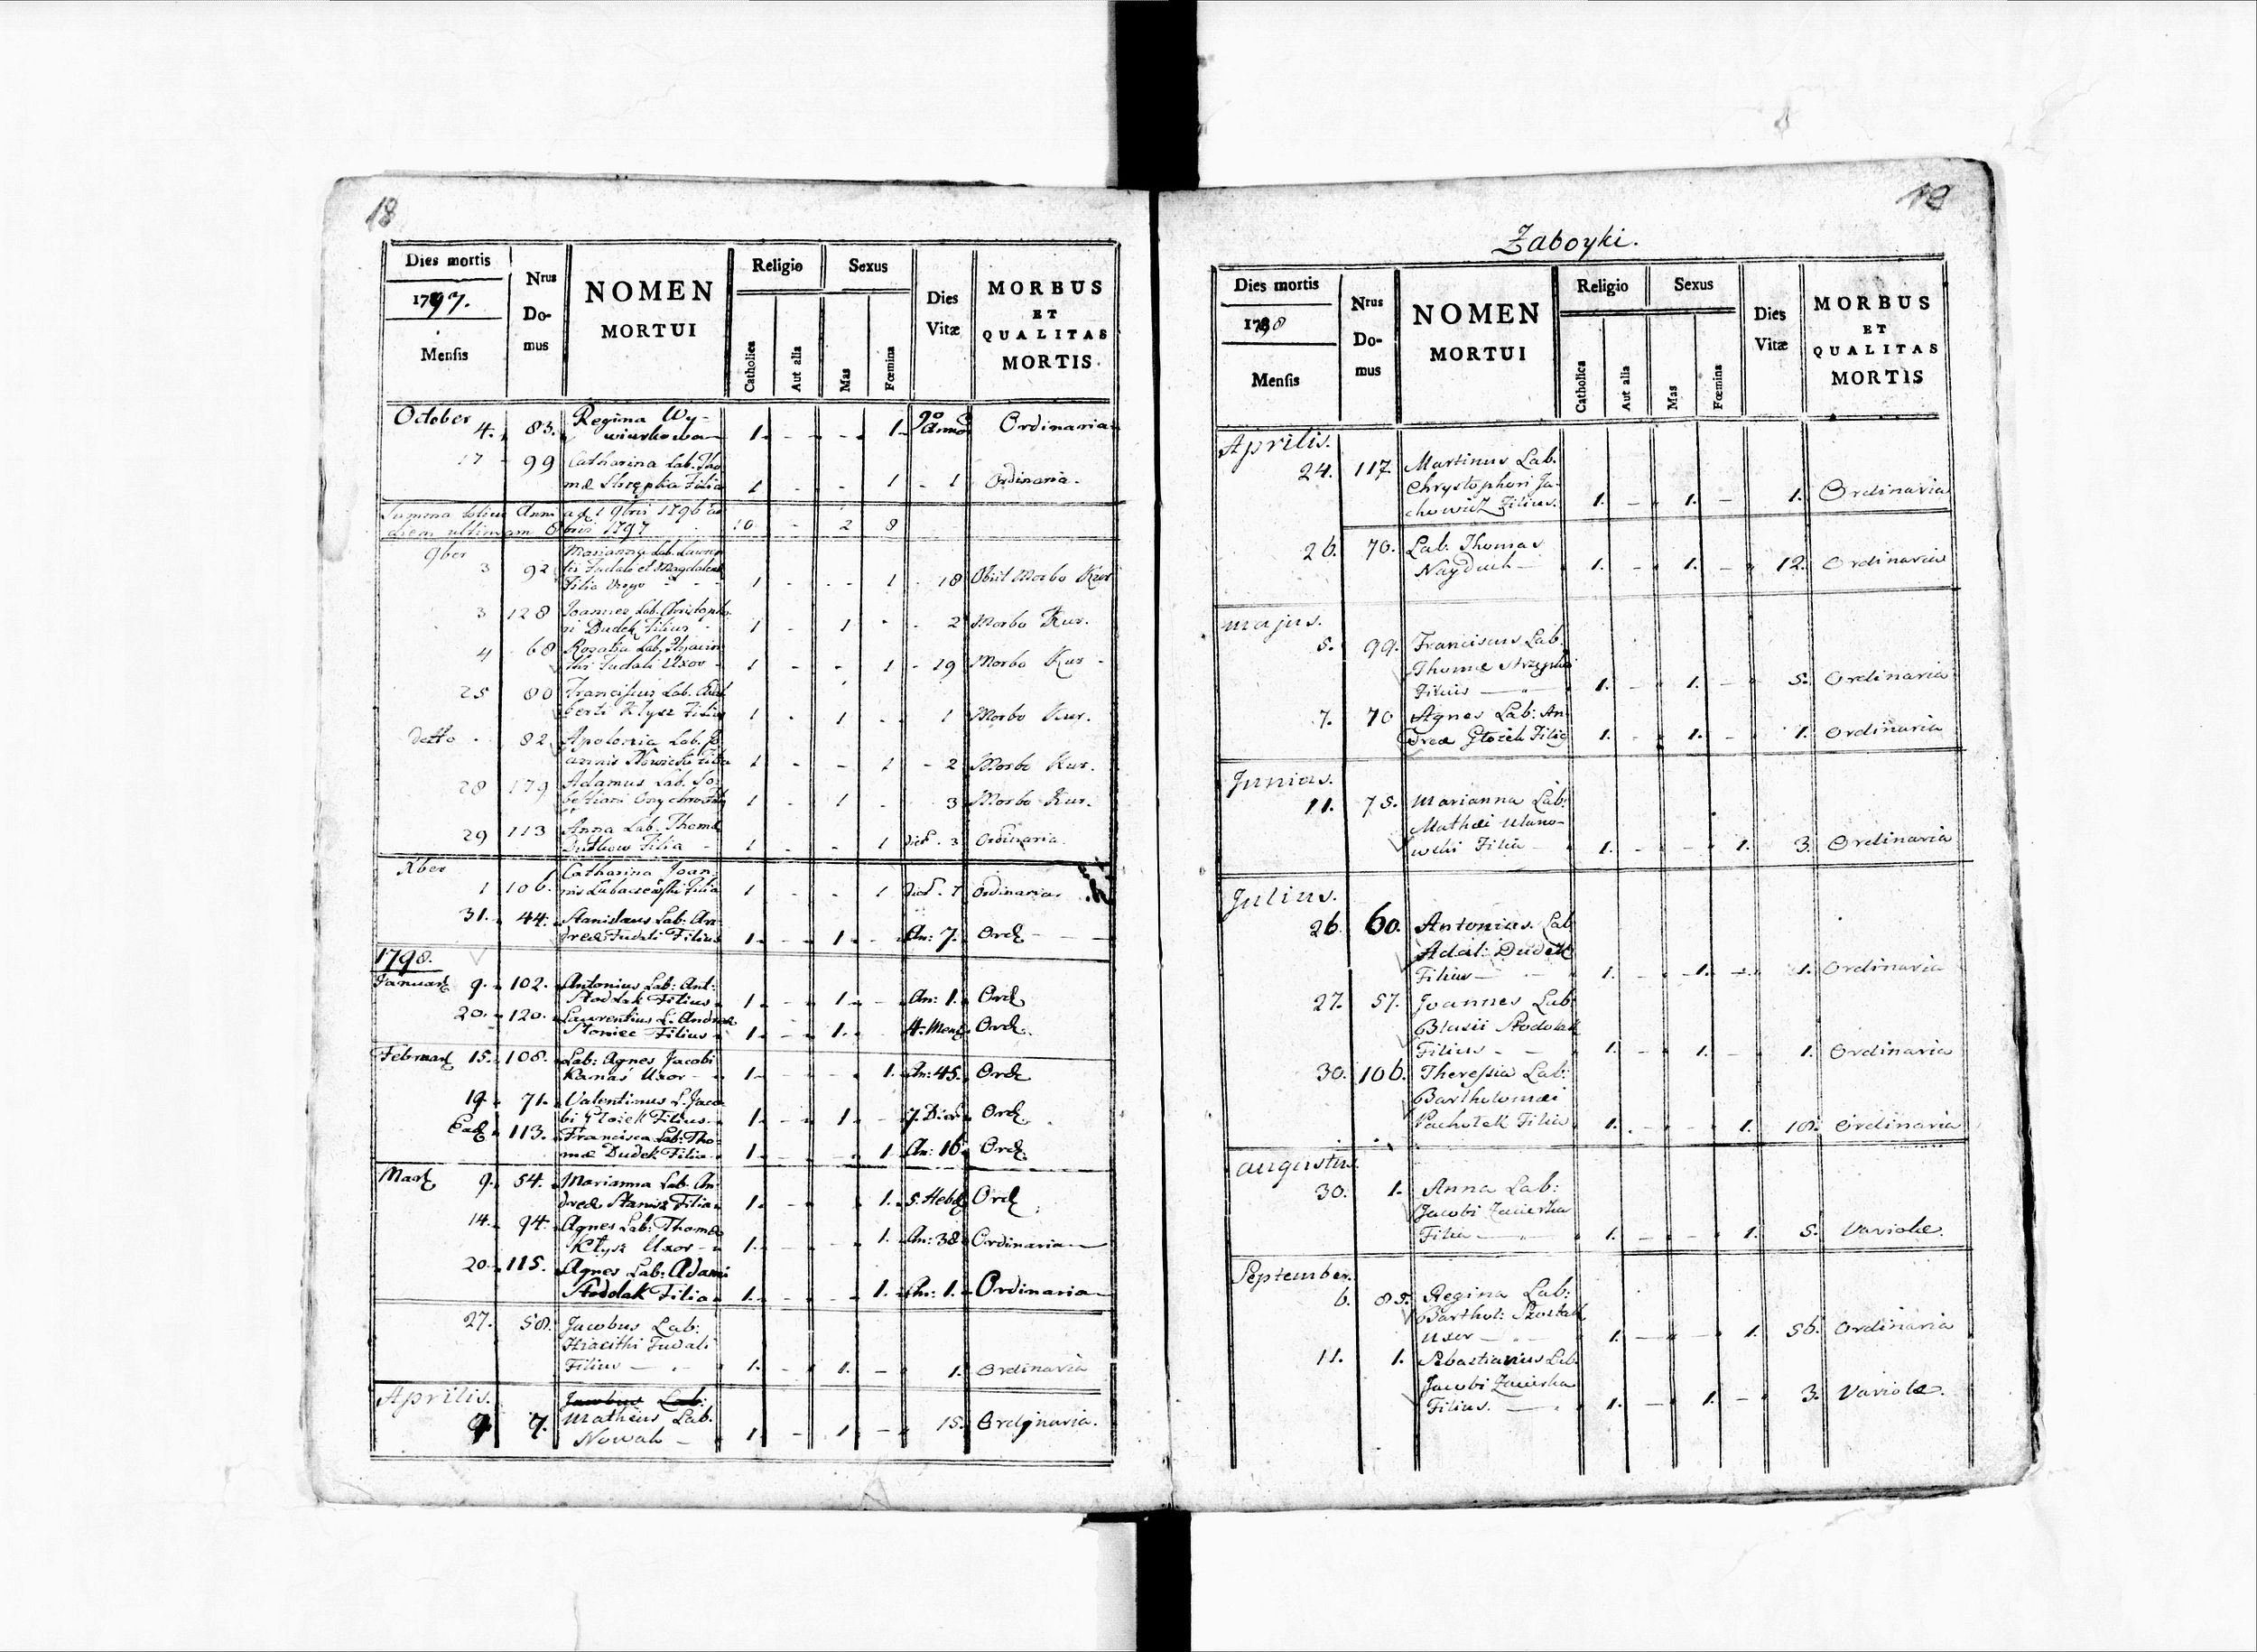 18
Dies mortis
1797.
Mensis
Nrus
Do-
mus
NOMEN
MORTUI
Religio
Catholica
Aut alia
Sexus
Mas
Fœmina
Dies
Vitæ
MORBUS
ET
QUALITAS
MORTIS.
October 4. 83. Regina Wy-
1. - - 1. Anno Ordinaria
17 99 Catharina Lab. Tho
mæ Filia 1 - - 1 - 1 Ordinaria.
Summa totius Anni a d. 1 9bris 1796 ad
diem ultimam 8bris 1797 10 - 2 8
9ber
3 92 Marianna Lab.
et Magdalena
Filia 1 - - 1 - 18 Obiit Morbo Kur
3 128 Joannes Lab. Christopho
ri Dudek Filius 1 - 1 - 2 Morbo Kur.
4 68 Rozalia Lab. Hyacin
thi Fudali Uxor 1 - - 1 - 19 Morbo Kur -
25 80 Franciscus Lab. Adal
berti Klysz Filius 1 - 1 - 1 Morbo Kur.
detto - 82 Apolonia Lab. Jo
annis Filia 1 - - 1 - 2 Morbo Kur.
28 179 Adamus Lab. Se
1 - 1 - 3 Morbo Kur.
29 113 Anna Lab. Thomæ
Filia - 1 - - 1 Dier. 3 Ordinaria.
Xber
1 106. Catharina Joan
nis Filia 1 - - 1 Dier. 7 Ordinaria.
31. 44. Stanislaus Lab: An
dreæ Fudali Filius 1. - 1. - An: 7. Ord -
1798.
Januar 9. 102. Antonius Lab: Ant:
Stodolak Filius 1. - 1. - An: 1. Ord
20. 120. Laurentius L: Andreæ
Sloniec Filius 1. - 1. 4. Mens Ord.
Februar 15. 108. Lab: Agnes Jacobi
Kanaś Uxor 1. - 1. An: 45. Ord
19. 71. Valentinus L: Jaco
bi Filius 1. - 1. - 7. Dier Ord.
Ead 113. Francisca Lab: Tho-
mæ Dudek Filia 1. - 1. An: 16. Ord.
Mart 9. 54. Marianna Lab. An
dreæ Stanisz Filia 1. - 1. 5. Hebd Ord
14. 94. Agnes Lab: Thomæ
Kłysz Uxor 1. - 1. An: 38. Ordinaria
20. 115. Agnes Lab: Adami
Stodolak Filia 1. - 1. An: 1. Ordinaria
27. 58. Jacobus Lab:
Hiacithi Fudali
Filius 1. - 1. - 1. Ordinaria
Aprilis.
7. Jacobus Lab:
Matheus Lab.
Nowak - 1. - 1. - 15. Ordinaria.
19
Zaboyki.
Dies mortis
1798
Mensis
Nrus
Do-
mus
NOMEN
MORTUI
Religio
Catholica
Aut alia
Sexus
Mas
Fœmina
Dies
Vitæ
MORBUS
ET
QUALITAS
MORTIS
Aprilis.
24. 117. Martinus Lab.
Chrystophori Ja-
chowicz Filius. 1. - 1. - 1. Ordinaria
26. 70. Lab: Thomas
Nayduch - 1. - 1. - 12. Ordinaria
majus.
5. 99. Franciscus Lab
Thomæ
Filius - 1. - 1. - 5. Ordinaria
7. 70 Agnes Lab: An
dreæ Filia 1. - 1. - 1. Ordinaria
Junius.
11. 75. Marianna Lab:
Mathæi Ulano-
wski Filia 1. - - 1. 3. Ordinaria
Julius.
26. 60. Antonius Lab
Adal: Dudek
Filius - 1. - 1. - 1. Ordinaria
27. 57. Joannes Lab:
Blasii Stodolak
Filius - 1. - 1. - 1. Ordinaria
30. 106. Theressia Lab:
Bartholomæi
Pachołek Filia 1. - - 1. 10. Ordinaria
augustus.
30. 1. Anna Lab:
Jacobi
Filia - 1. - - 1. 5. Variolæ.
September.
6. 85. Regina Lab:
Barthol: Szostak
Uxor - 1. - - 1. 56. Ordinaria
11. 1. Sebastianus Lab.
Jacobi
Filius. - 1. - 1. - 3. Variolæ.